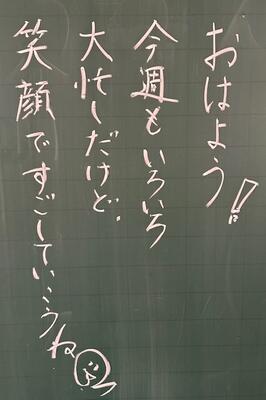 おはよう!
今週もいろいろ
大忙しだけど、
笑顔ですごしていこうね